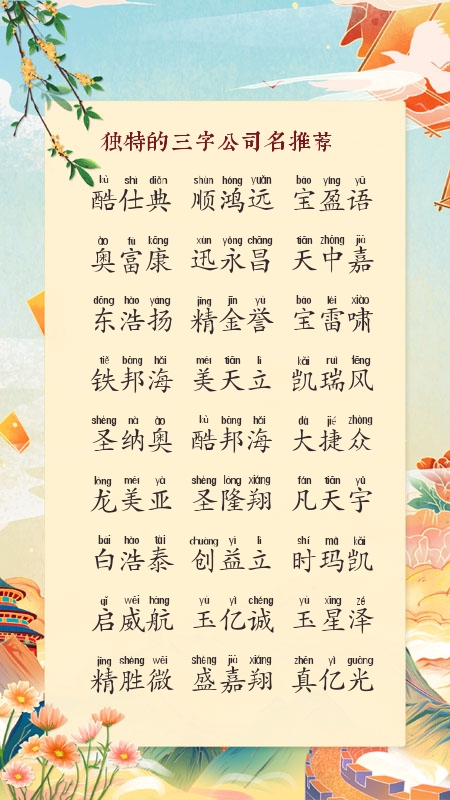 独特的三字公司名推荐
kù shì diǎn shùn hóng yuǎn bǎo yíng yǔ
酷仕典 顺鸿远 宝盈语
ào fù kāng xùn yǒng chāng tiān zhōng jiā
奥富康 迅永昌 天中嘉
dōng hào yáng jīng jīn yù bǎo léi xiào
东浩扬 精金誉 宝雷啸
tiě bāng hǎi měi tiān lì kǎi ruì fēng
铁邦海 美天立 凯瑞风
shèng nà ào kù bāng hǎi dà jié zhòng
圣纳奥 酷邦海 大捷众
lóng měi yà shèng lóng xiáng fán tiān yǔ
龙美亚 圣隆翔 凡天宇
bái hào tài chuàng yì lì shí mǎ kǎi
白浩泰 创益立 时玛凯
qǐ wēi háng yù yì chéng yù xīng zé
启威航 玉亿诚 玉星泽
jīng shèng wēi shèng jiā xiáng zhēn yì guāng
精胜微 盛嘉翔 真亿光